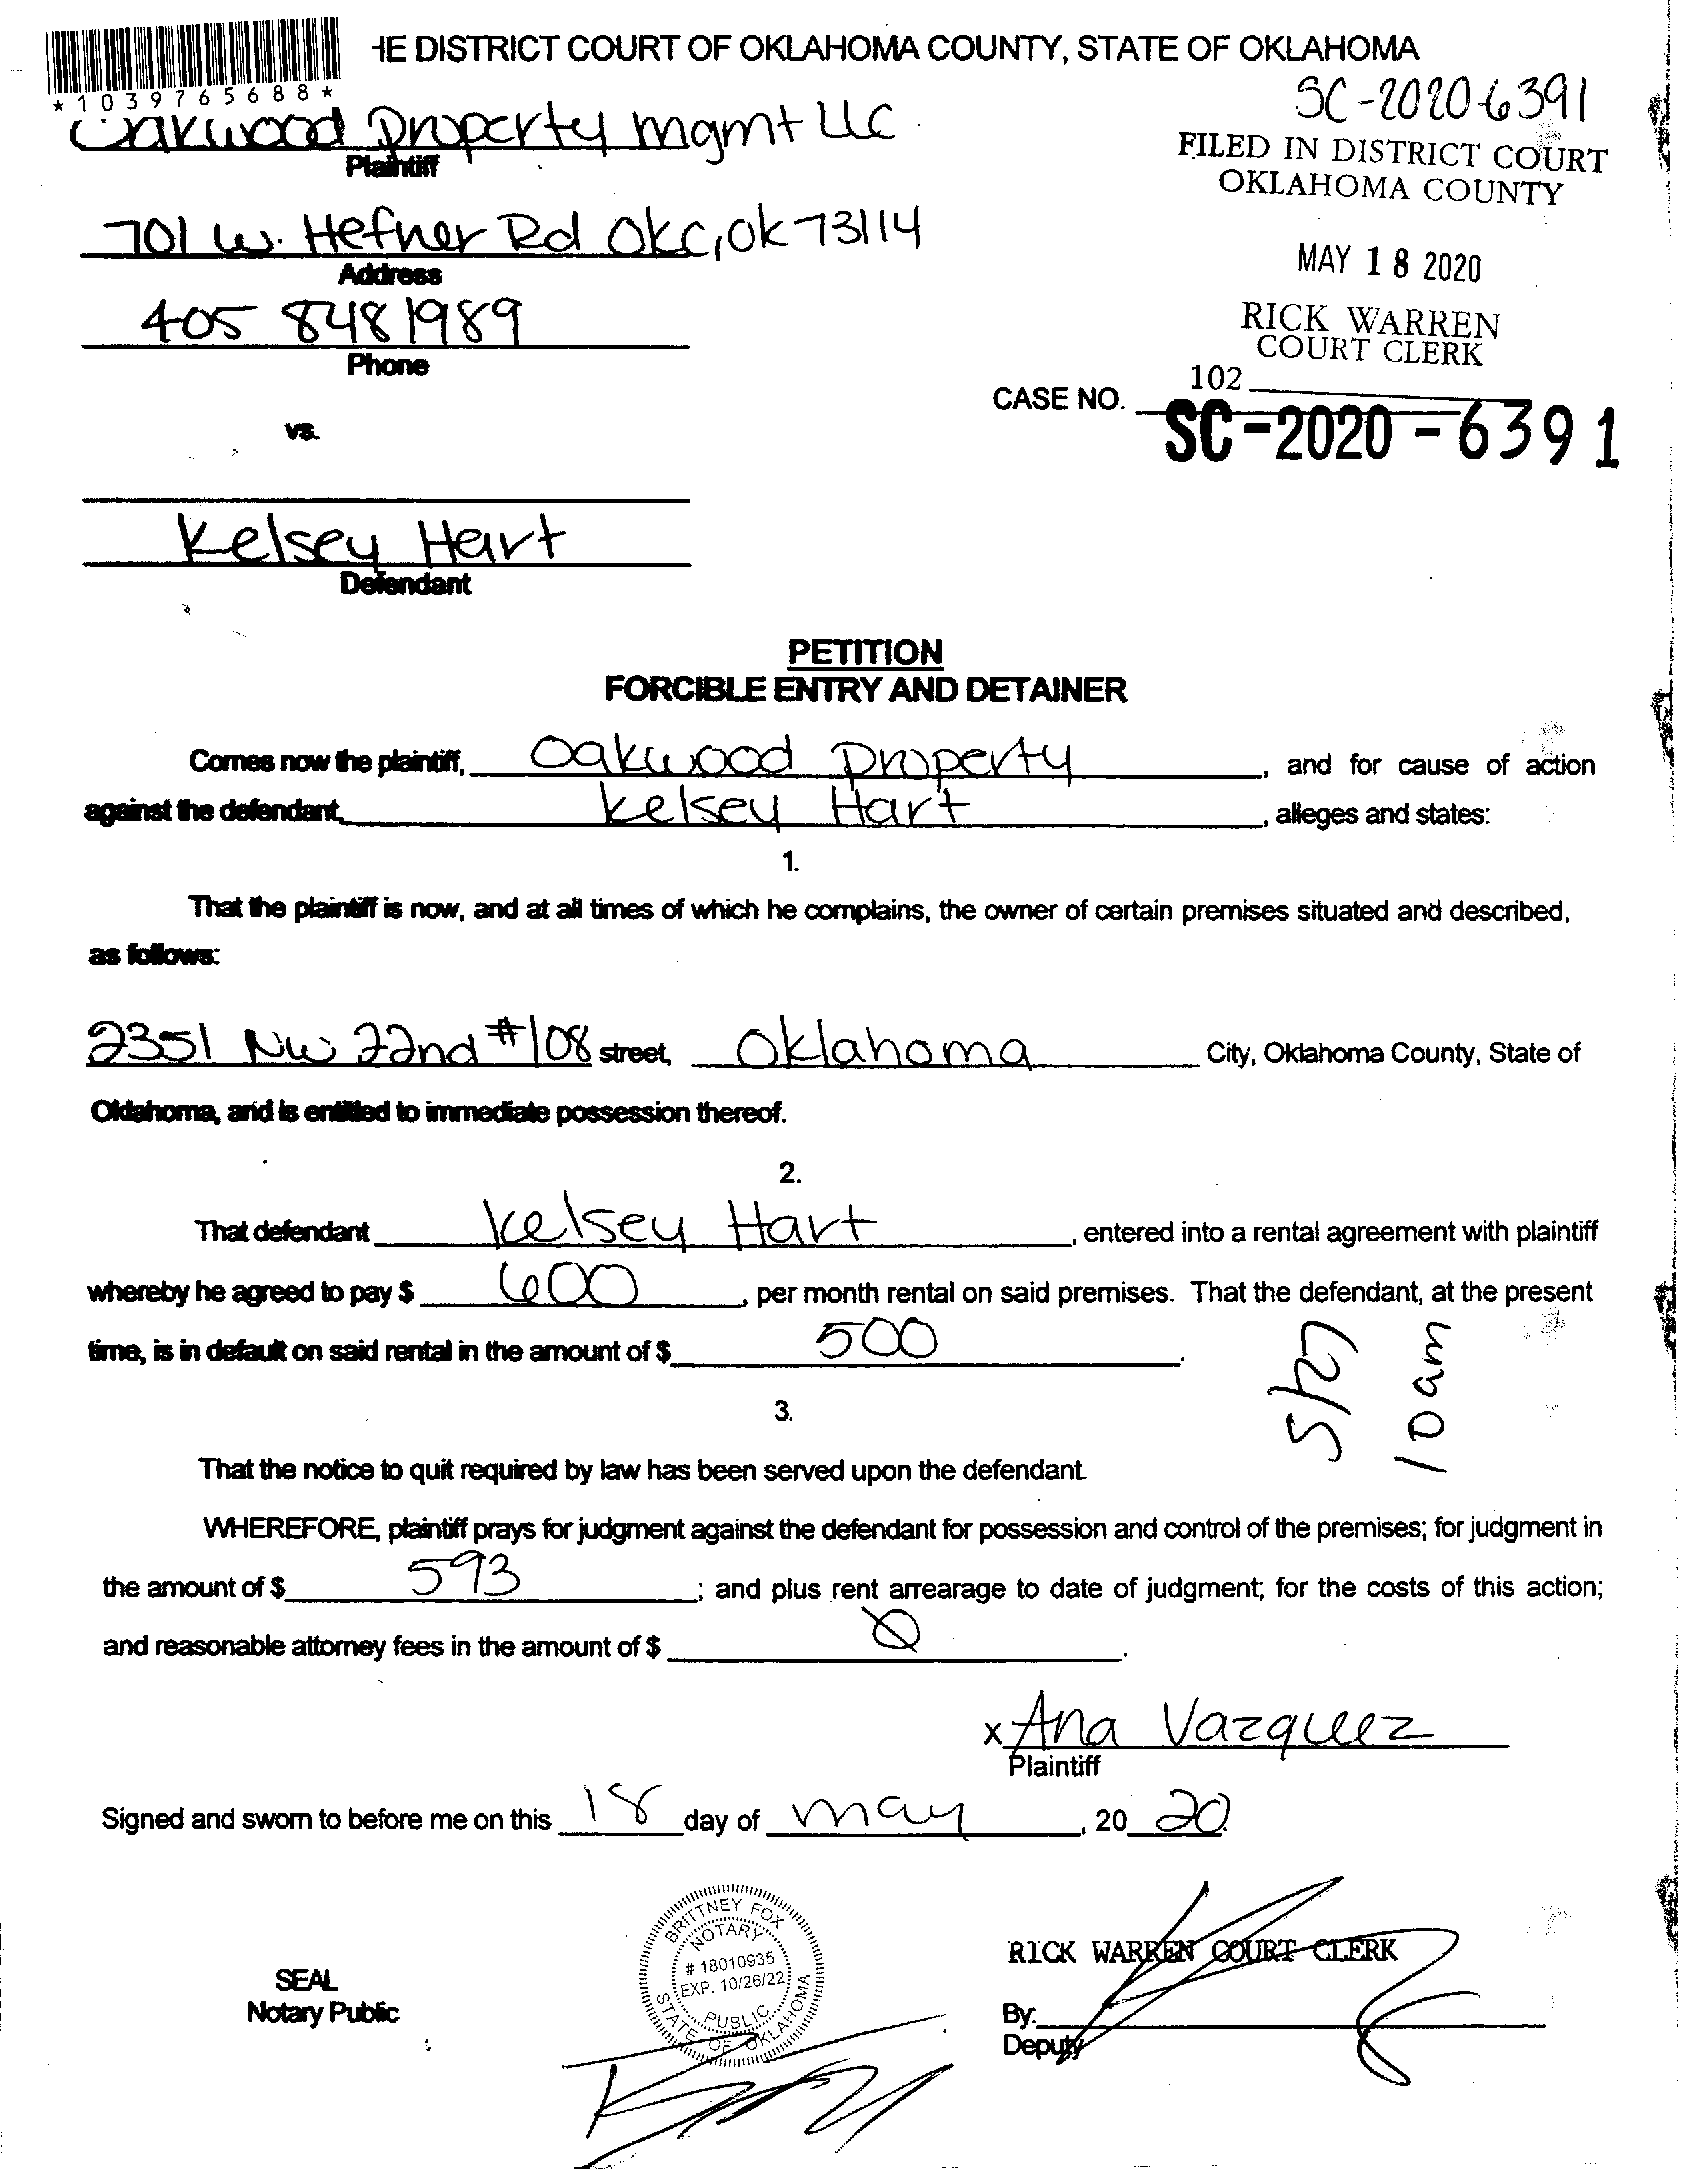 HE DISTRICT COURT OF OKLAHOMA COUNTY, STATE OF OKLAHOMA
*1039765688*
SC-2020-6391
Oakwood Property mgmt LLC
Plaintiff
FILED IN DISTRICT COURT
OKLAHOMA COUNTY
701 W. Hefner Rd OKC, OK 73114
Address
MAY 18 2020
405 848 1989
Phone
RICK WARREN
COURT CLERK
102
CASE NO. SC-2020-6391
vs.
Kelsey Hart
Defendant
PETITION
FORCIBLE ENTRY AND DETAINER
Comes now the plaintiff, Oakwood Property, and for cause of action
against the defendant, Kelsey Hart, alleges and states:
1.
That the plaintiff is now, and at all times of which he complains, the owner of certain premises situated and described,
as follows:
2351 NW 22nd #108 street, Oklahoma City, Oklahoma County, State of
Oklahoma, and is entitled to immediate possession thereof.
2.
That defendant Kelsey Hart, entered into a rental agreement with plaintiff
whereby he agreed to pay $ 600, per month rental on said premises. That the defendant, at the present
time, is in default on said rental in the amount of $ 500.
5/27
10am
3.
That the notice to quit required by law has been served upon the defendant.
WHEREFORE, plaintiff prays for judgment against the defendant for possession and control of the premises; for judgment in
the amount of $ 593; and plus rent arrearage to date of judgment; for the costs of this action;
and reasonable attorney fees in the amount of $ 0.
x Ana Vazquez
Plaintiff
Signed and sworn to before me on this 18 day of may, 20 20.
BRITTNEY FOX
NOTARY
# 18010935
EXP. 10/26/22
PUBLIC
STATE OF OKLAHOMA
SEAL
Notary Public
RICK WARREN COURT CLERK
By:
Deputy